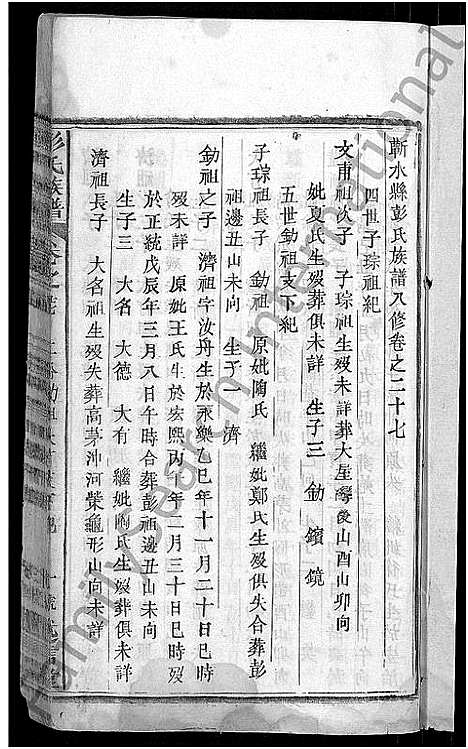 蘄水縣彭氏族譜八修卷之二十七
四世子琮祖紀
文甫祖次子　子琮祖生歿未詳葬大屋灣後山酉山卯向
妣夏氏生歿葬俱未詳　生子三　劬　鑌　鏡
五世劬祖支下紀
子琮祖長子　劬祖　原妣陶氏　繼妣鄭氏生歿俱失合葬彭
祖邊丑山未向　生子一　濟
劬祖之子　濟祖字汝舟生於永樂乙巳年十一月二十日巳時
歿未詳　原妣王氏生於宏熙丙午年二月三十日巳時歿
於正統戊辰年三月八日午時合葬彭祖邊丑山未向
生子三　大名　大德　大有　繼妣陶氏生歿葬俱未詳
濟祖長子　大名祖生歿失葬高茅沖河柴龜形山向未詳
彭氏族譜
FamilySearch International